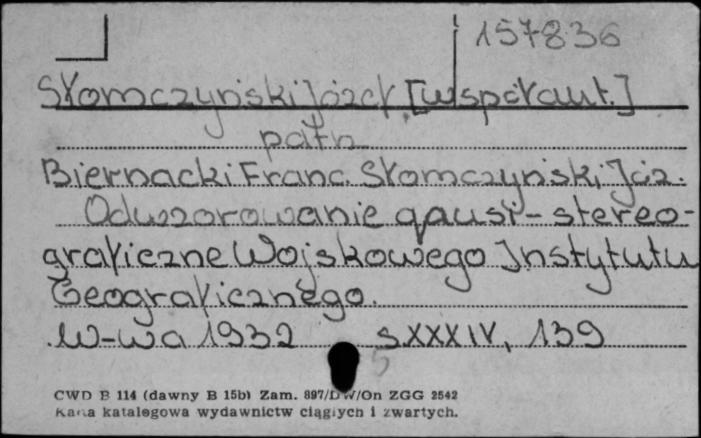 157836
Słomczyński Józef [współaut.]
patrz
Biernacki Franc. Słomczyński Józ.
Odwzorowanie qausi-stereo-
graficzne Wojskowego Instytutu
Geograficznego.
W-wa 1932 s XXXIV, 139
5
CWD B 114 (dawny B 15b) Zam. 897/DW/On ZGG 2542
Karta katalogowa wydawnictw ciągłych i zwartych.